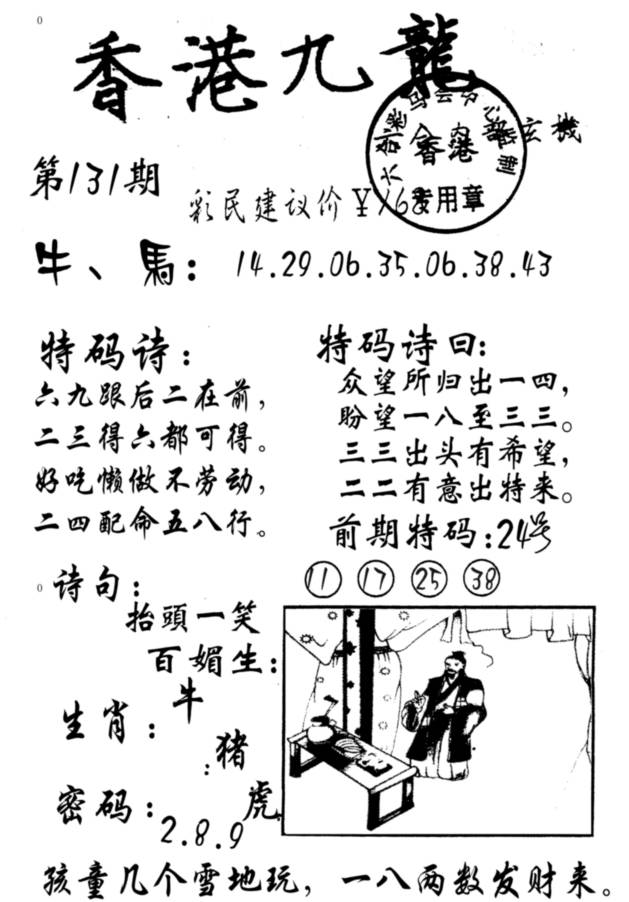 香港九龍
玄機
香港
专用章
第131期
彩民建议价¥168
牛、馬: 14.29.06.35.06.38.43
特码诗:
六九跟后二在前,
二三得六都可得。
好吃懒做不劳动,
二四配命五八行。
特码诗曰:
众望所归出一四,
盼望一八至三三。
三三出头有希望,
二二有意出特来。
前期特码:24号
11 17 25 38
诗句:
抬頭一笑
百媚生:
生肖:牛
:猪
虎
密码:2.8.9
孩童几个雪地玩,一八两数发财来。